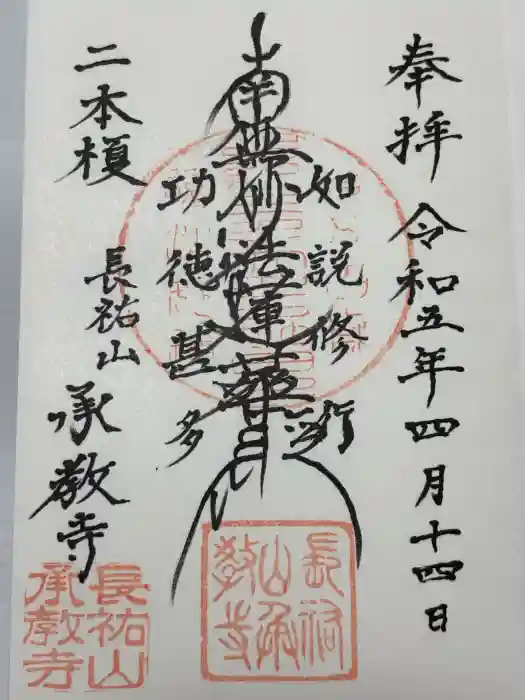 奉拝 令和五年四月十四日
如説修行
南無妙法蓮華経
功徳甚多
二本榎
長祐山
承教寺
長祐
山承
教寺
長祐山
承教寺